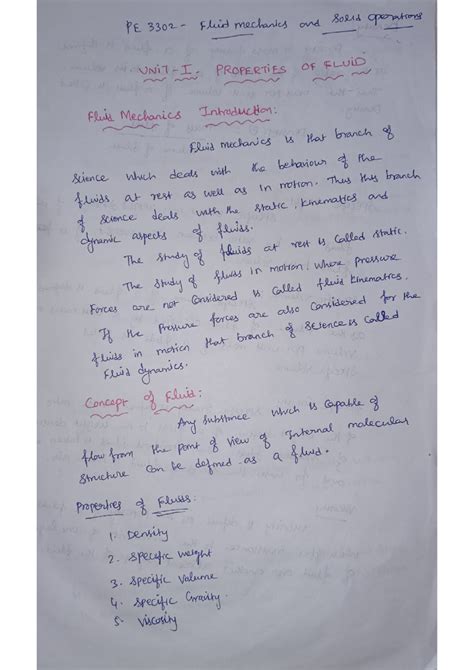 PE 3302 - Fluid mechanics and Solid operations
UNIT-I. PROPERTIES OF FLUID
Fluid Mechanics Introduction:
Fluid mechanics is that branch of
Science which deals with the behaviour of the
fluids at rest as well as in motion. Thus this branch
of science deals with the static, kinematics and
dynamic aspects of fluids.
The study of fluids at rest is called static.
The study of fluids in motion, where pressure
Forces are not considered is called fluid kinematics.
If the pressure forces are also considered for the
fluids in motion that branch of science is called
Fluid dynamics.
Concept of Fluid:
Any substance which is capable of
flow from the point of view of Internal molecular
structure can be defined as a fluid.
Properties of Fluids:
1. Density
2. Specific weight
3. Specific Volume
4. Specific Gravity
5. Viscosity